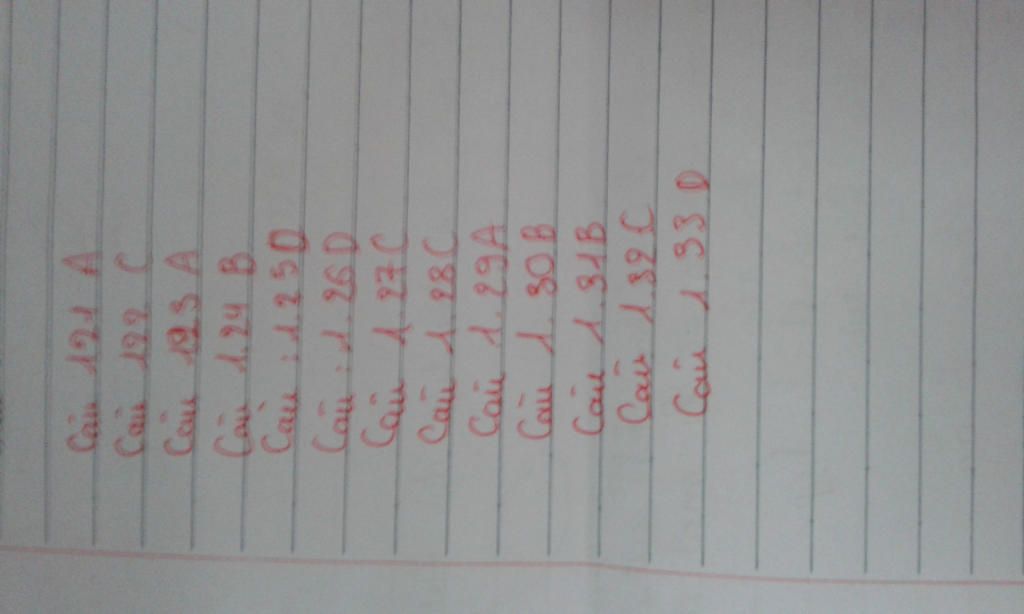 Câu 121 A
Câu 122 C
Câu 123 A
Câu 1.24 B
Câu : 1.25 D
Câu : 1.26 D
Câu 1.27 C
Câu 1.28 C
Câu 1.29 A
Câu 1.30 B
Câu 1.31 B
Câu 1.32 C
Câu 1.33 D